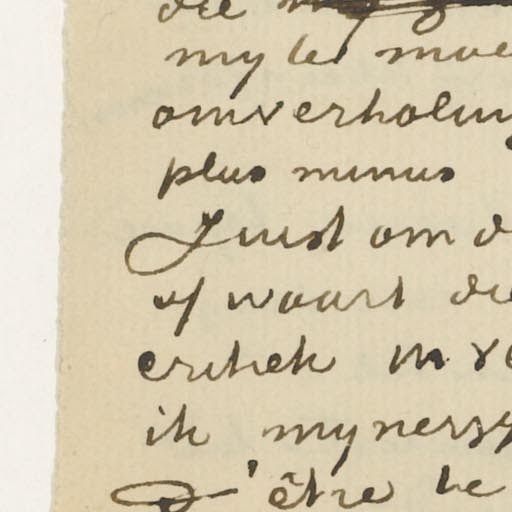 die
myler moe
onverholen
plus minus
Juist om d
of waart die
critiek in ve
ik mynerzy
d'être te